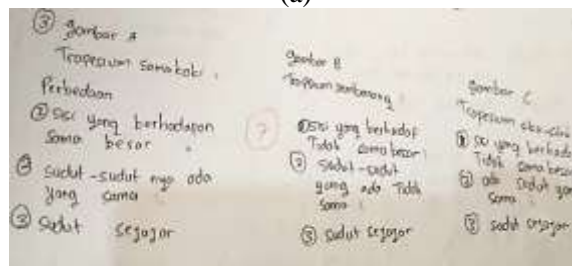 (a)
③ gambar A
Trapesium samakaki
Perbedaan
① sisi yang berhadapan
sama besar
② sudut-sudut nya ada
yang sama
③ sudut sejajar
gambar B
Trapesium sembarang
① sisi yang berhadap
Tidak sama besar
② sudut-sudut
yang ada Tidak
sama
③ sudut sejajar
gambar C
Trapesium siku-siku
① sisi yang berhada
Tidak sama besar
② ada sudut ya
sama
③ sudut sejajar